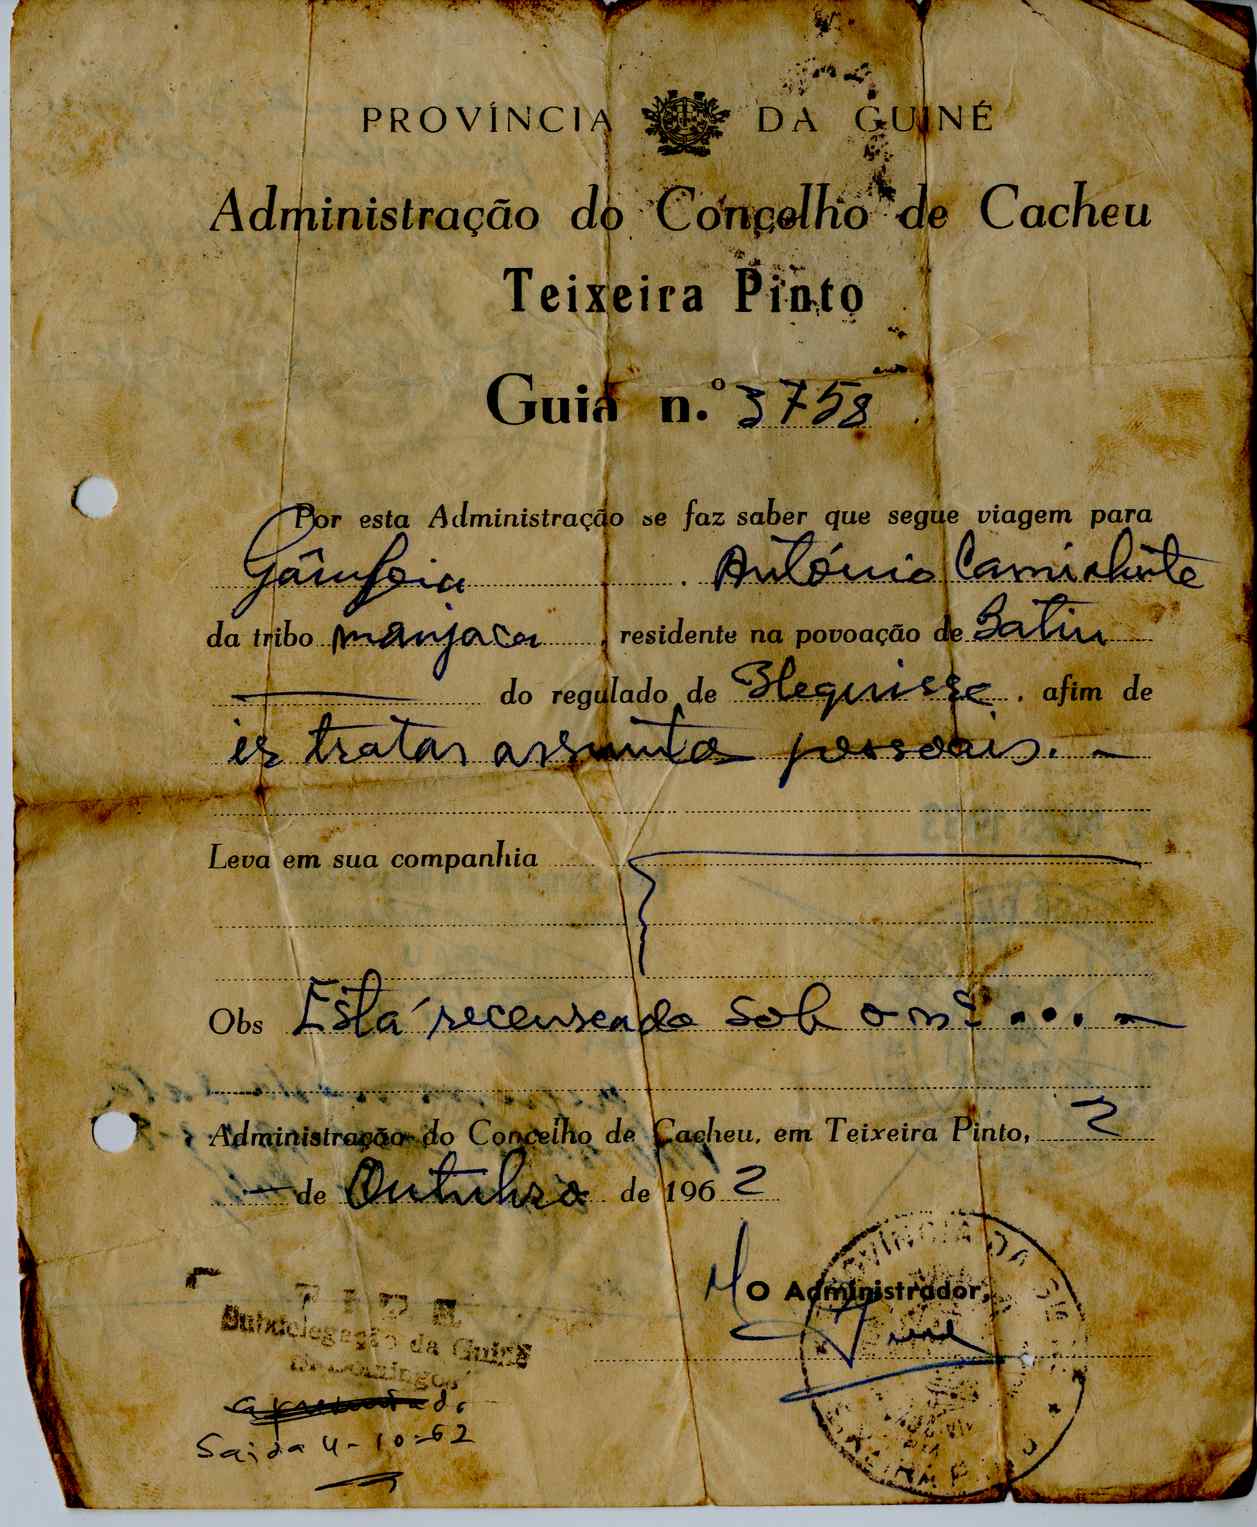 PROVÍNCIA DA GUINÉ
Administração do Concelho de Cacheu
Teixeira Pinto
Guia n.º 3758
Por esta Administração se faz saber que segue viagem para
Gâmbia António
da tribo manjaca, residente na povoação de Batiu
do regulado de Bleguisse, afim de
ir tratar assuntos pessoais.
Leva em sua companhia
Obs Está recenseado sob o nº ...
Administração do Concelho de Cacheu, em Teixeira Pinto, 2
de Outubro de 1962
O Administrador,
PROVÍNCIA DA GUINÉ
P I D E
Subdelegação da Guiné
S. Domingos
apresentado
Saida 4-10-62